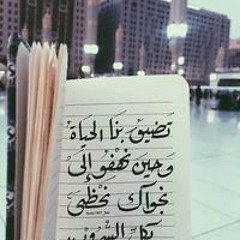 تضيق بنا الحياة
وحين نهفو إلى
نجواك نحظى
بكل السرور